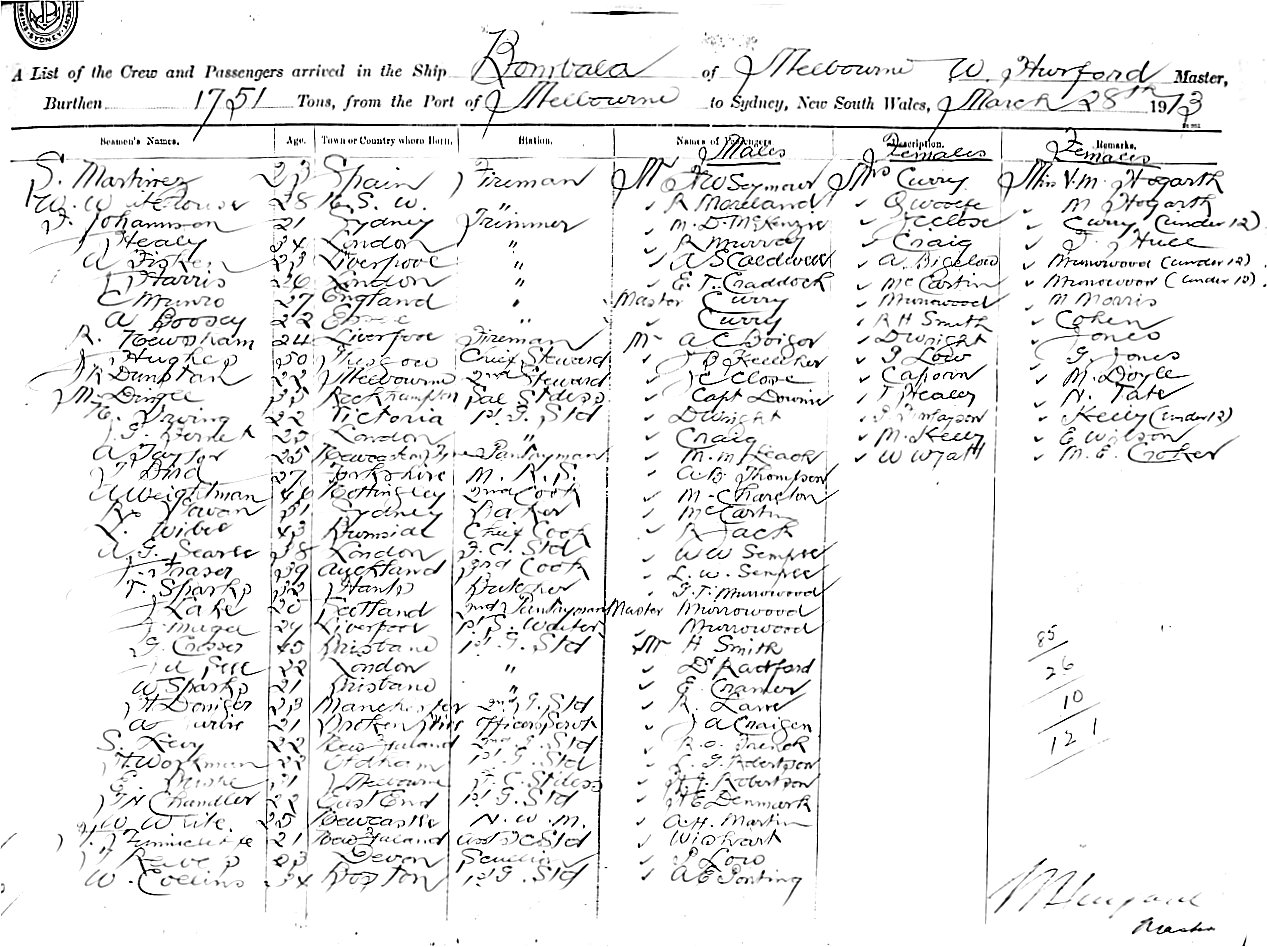 A List of the Crew and Passengers arrived in the Ship Bombala of Melbourne W. Hurford Master,
Burthen 1751 Tons, from the Port of Melbourne to Sydney, New South Wales, March 28th 1913
Seamen's Names. Age. Town or Country where Born. Station. Names of Passengers Description. Remarks.
Males Females Females
S. Martinez 23 Spain Fireman Mr H W Seymour Mrs Curry Miss V. M. Hogarth
W. 28 N. S. W. " R Moreland M Hogarth
F. Johannson 21 Sydney Trimmer M. D. McKenzie J C Close Curry (under 12)
J Healy 34 London " R Murray Craig J Hull
A Fisken 23 Liverpool " A S Caldwell A Bigelow Murrowood (under 12)
J Harris 26 London " E T. Craddock McCartin Murrowood (under 12)
C Munro 27 England " Master Curry Murrowood M Morris
A Boosey 22 Essex " Curry R H Smith Cohen
R. Hewsham 24 Liverpool Fireman Mr A C Boiger Dwright Jones
J Hughes 50 Chief Steward J B Kelliher J Low G. Jones
J R Dunstan 33 Melbourne 2nd Steward J C Close Caporn M. Doyle
M Dingle 33 Rockhampton Sal Stdess Capt Downie T Healey N. Tate
Irving 22 Victoria 1st G. Std Dwright Kelly (under 12)
25 London " Craig M. Kelly E Wilson
A Taylor 25 Newcastle Tyne Pantryman M. M Leach W Wyatt M. E. Croker
27 Yorkshire M. R. S. A B Thompson
A Weightman 46 Knottingley 2nd Cook M Charlton
Pavan 31 Sydney Baker McCartin
43 Chief Cook R Jack
A G. Searle 38 London F. C. Std W W Semple
Fraser 39 Auckland 3rd Cook L. W. Semple
T. Sparks 32 Hants Butcher G. T. Murrowood
J Lake 20 2nd Pantryman Master Murrowood
J 29 Liverpool 1st S. Waiter Murrowood
G. 40 Brisbane 1st G. Std Mr H Smith
32 London " Dr Radford
W Sparks 21 Brisbane " E Cramer
H Doniger 23 Manchester 2nd G. Std R. Lane
21 Broken Hill Officers Servt J A Craigen
S. Levy 22 New Zealand 2nd G. Std R. O. French
H Workman 22 Oldham 1st G. Std L. G. Robertson
E 31 Melbourne F. C. Stdess H. J. Robertson
G N Chandler 22 East End 1st G. Std H E Denmark
W White 25 Newcastle N. W. M. A H. Martin
21 New Zealand Std Wishart
J Reeves 23 Devon Scullion J. Low
W. Collins 34 Boston 1st G. Std A E Ponting
85
26
10
121
Master